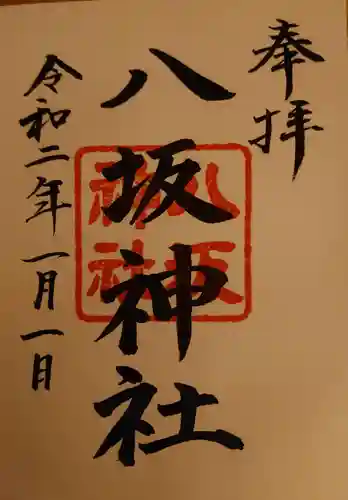 奉拝
八坂神社
八坂
神社
令和二年一月一日